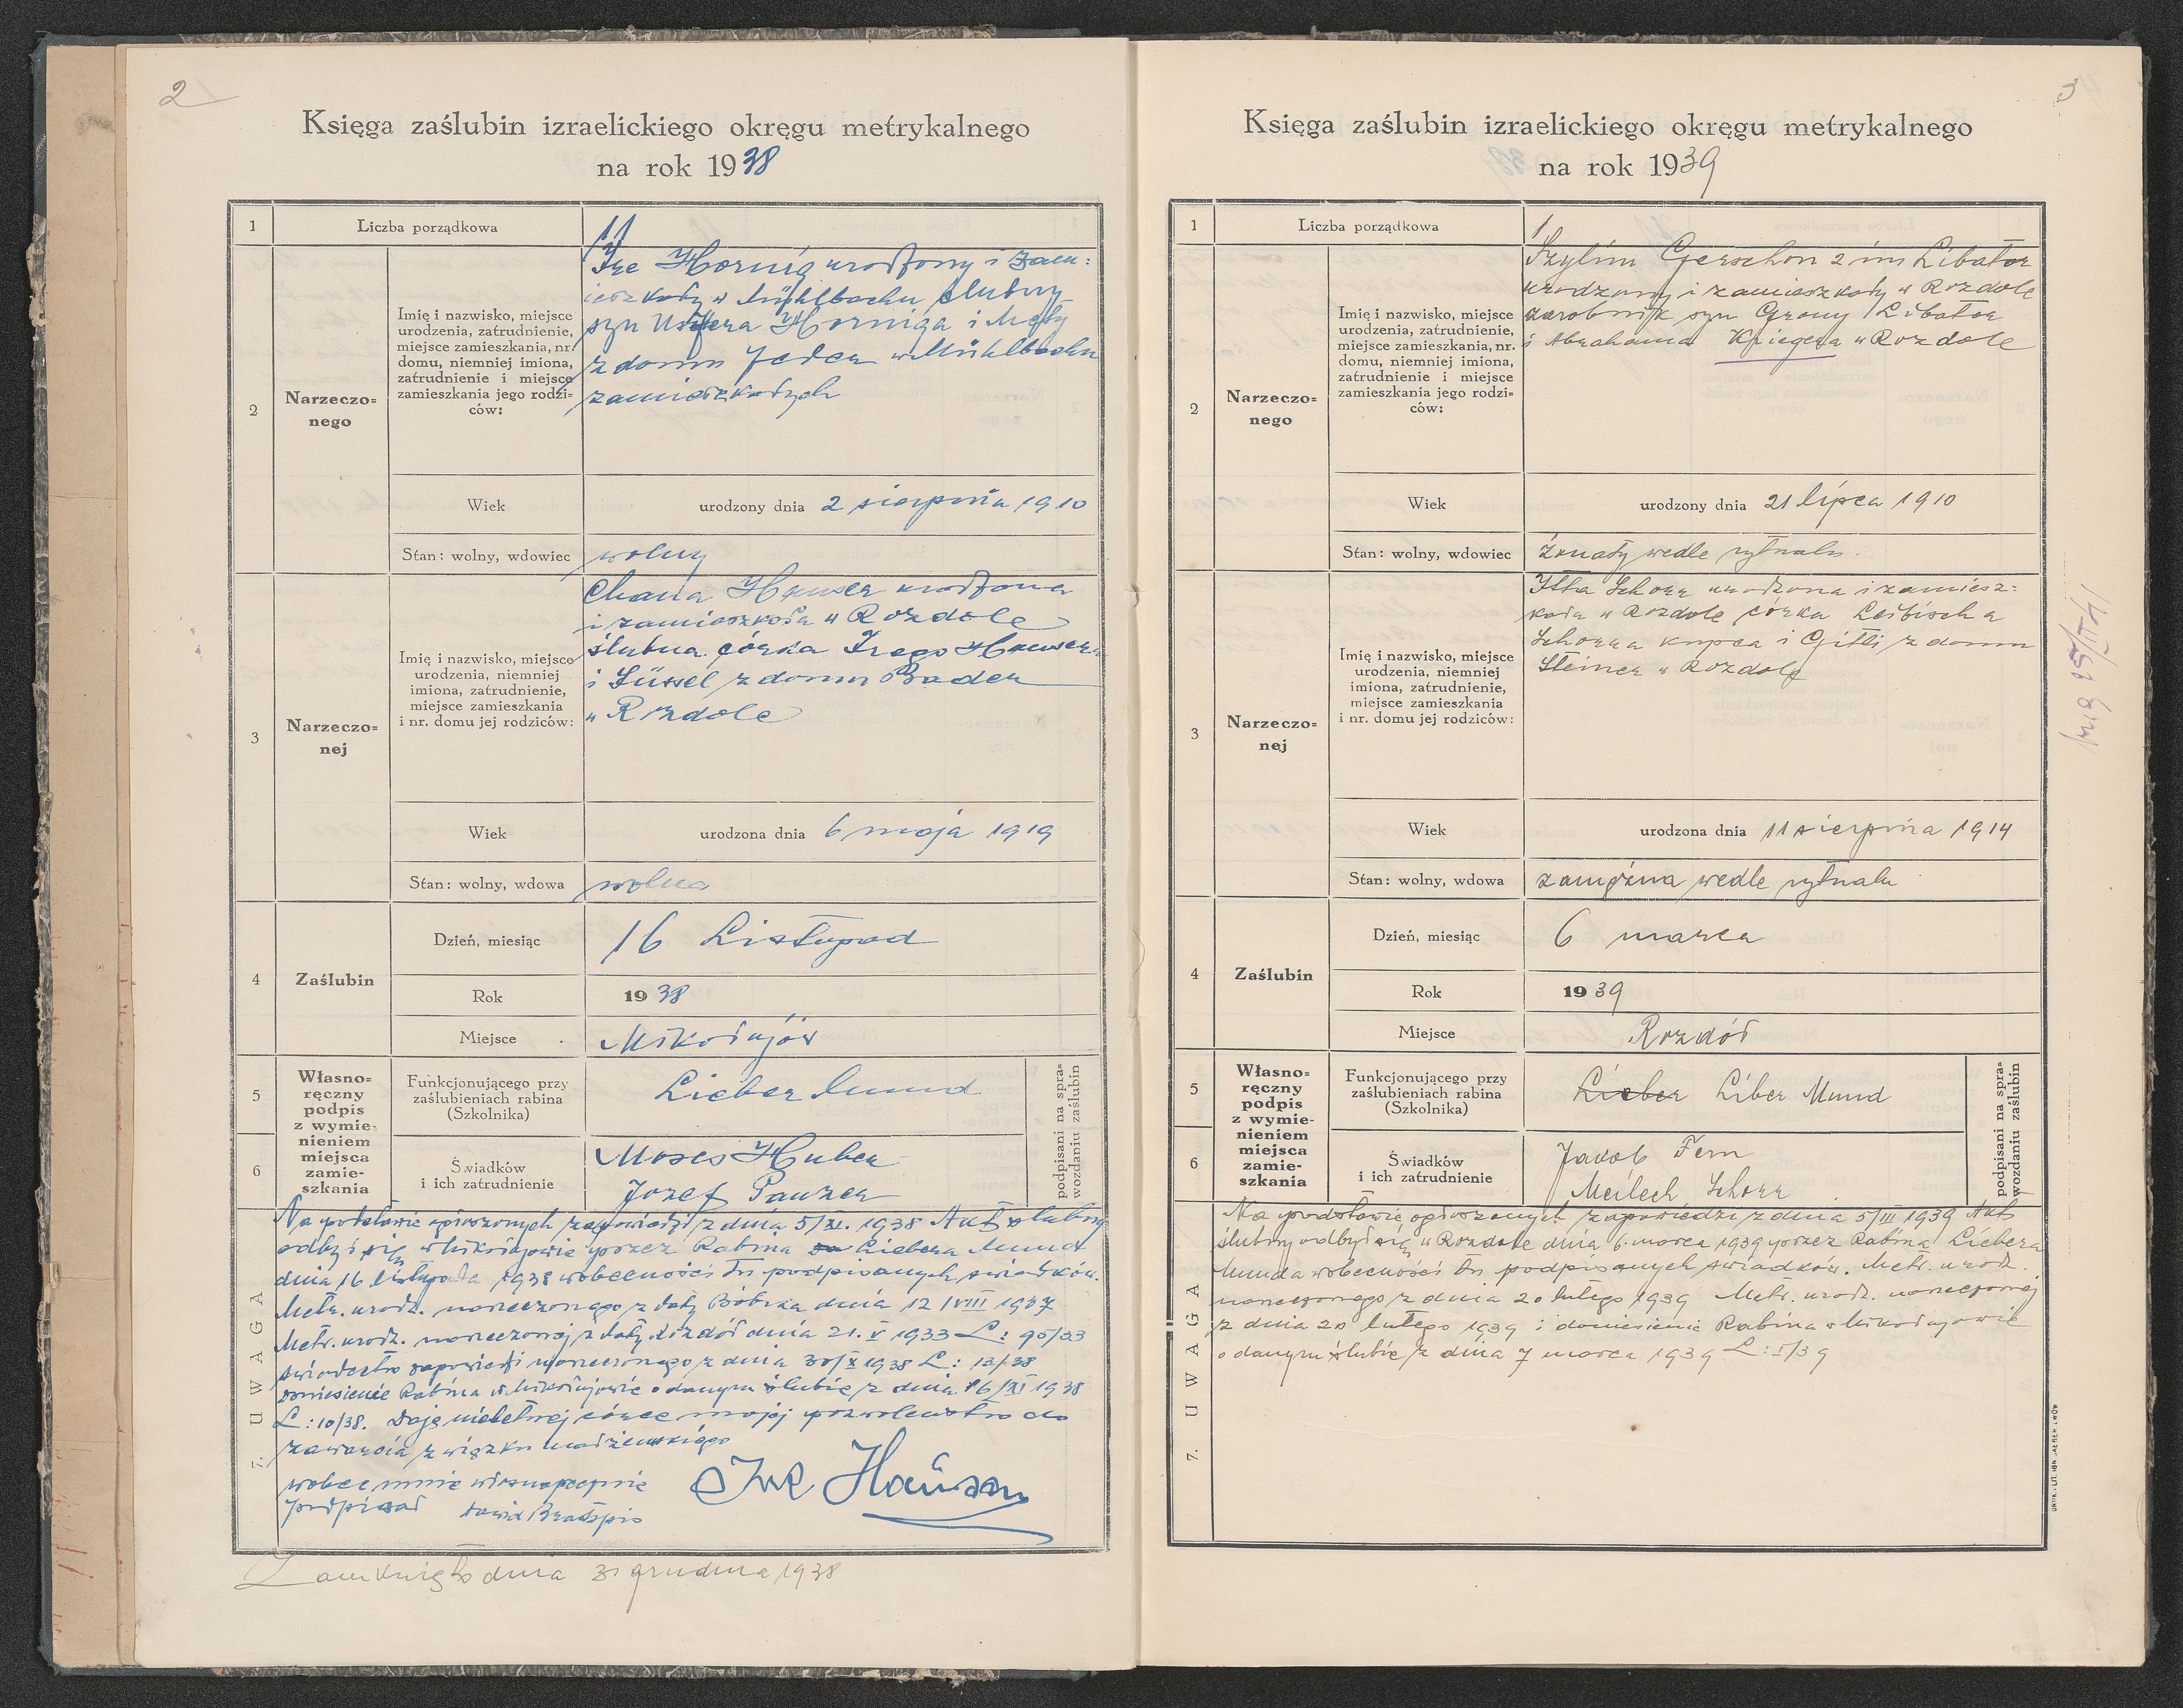 2
Księga zaślubin izraelickiego okręgu metrykalnego
na rok 1938
1
Liczba porządkowa
11
2
Narzeczo=
nego
Imię i nazwisko, miejsce
urodzenia, zatrudnienie,
miejsce zamieszkania, nr.
domu, niemniej imiona,
zatrudnienie i miejsce
zamieszkania jego rodzi=
ców:
Ire Hornig urodzony i zam:
ieszkały w Mühlbachu ślubny
syn Uschera Horniga i Małły
z domu Feder w Mühlbachu
zamieszkałych
Wiek
urodzony dnia 2 sierpnia 1910
Stan: wolny, wdowiec
wolny
3
Narzeczo=
nej
Imię i nazwisko, miejsce
urodzenia, niemniej
imiona, zatrudnienie,
miejsce zamieszkania
i nr. domu jej rodziców:
Chana Hauser urodzona
i zamieszkała w Rozdole
ślubna córka Irego Hausera
i Süssel z domu Bader
w Rozdole
Wiek
urodzona dnia 6 maja 1919
Stan: wolny, wdowa
wolna
4
Zaślubin
Dzień, miesiąc
16 Listopad
Rok
1938
Miejsce
Mikołajów
5
6
Własno=
ręczny
podpis
z wymie-
nieniem
miejsca
zamie-
szkania
Funkcjonującego przy
zaślubieniach rabina
(Szkolnika)
Lieber Mund
Świadków
i ich zatrudnienie
Moses Huber
Jozef Pauzer
podpisani na spra=
wozdaniu zaślubin
7. UWAGA
Na podstawie ogłoszonych zapowiedzi z dnia 5/XI. 1938 Akt ślubny
odbył się w Mikołajowie przez Rabina Liebera Mund
dnia 16 listopada 1938 w obecności tu podpisanych świadków.
Metr. urodz. narzeczonego z daty Bóbrka dnia 12/VIII 1937
Metr. urodz. narzeczonej z daty Rozdół dnia 21. V 1933 L: 90/33
świadectwo zapowiedzi narzeczonego z dnia 30/X 1938 L: 13/38
doniesienie Rabina w Mikołajowie o danym ślubie z dnia 16/XI 1938
L: 10/38. Daję nieletniej córce mojej pozwoleństwo do
zawarcia związku małżeńskiego
wobec mnie własnoręcznie
podpisał Dawid Bratspis
Ire Hauser
Zamknięto dnia 31 grudnia 1938
3
Księga zaślubin izraelickiego okręgu metrykalnego
na rok 1939
1
Liczba porządkowa
1
2
Narzeczo=
nego
Imię i nazwisko, miejsce
urodzenia, zatrudnienie,
miejsce zamieszkania, nr.
domu, niemniej imiona,
zatrudnienie i miejsce
zamieszkania jego rodzi=
ców:
Gerschon 2 im Libator
urodzony i zamieszkały w Rozdole
zarobnik syn Libator
i Abrahama Kriegera w Rozdole
Wiek
urodzony dnia 21 lipca 1910
Stan: wolny, wdowiec
żonaty wedle rytuału.
3
Narzeczo=
nej
Imię i nazwisko, miejsce
urodzenia, niemniej
imiona, zatrudnienie,
miejsce zamieszkania
i nr. domu jej rodziców:
Itta Schorr urodzona i zamiesz=
kała w Rozdole córka Leibischa
Schorra kupca i Gitli z domu
Steiner w Rozdole
Wiek
urodzona dnia 11 sierpnia 1914
Stan: wolny, wdowa
zamężna wedle rytuału
4
Zaślubin
Dzień, miesiąc
6 marca
Rok
1939
Miejsce
Rozdół
5
6
Własno=
ręczny
podpis
z wymie-
nieniem
miejsca
zamie-
szkania
Funkcjonującego przy
zaślubieniach rabina
(Szkolnika)
Lieber Liber Mund
Świadków
i ich zatrudnienie
Jakob Fern
Meilech Schorr
podpisani na spra=
wozdaniu zaślubin
7. UWAGA
Na podstawie ogłoszonych zapowiedzi z dnia 5/III 1939 Akt
ślubny odbył się w Rozdole dnia 6. marca 1939 przez Rabina Liebera
Munda w obecności tu podpisanych świadków. Metr. urodz.
narzeczonego z dnia 20 lutego 1939 Metr. urodz. narzeczonej
z dnia 20 lutego 1939 i doniesienie Rabina w Mikołajowie
o danym ślubie z dnia 7 marca 1939 L: 1/39